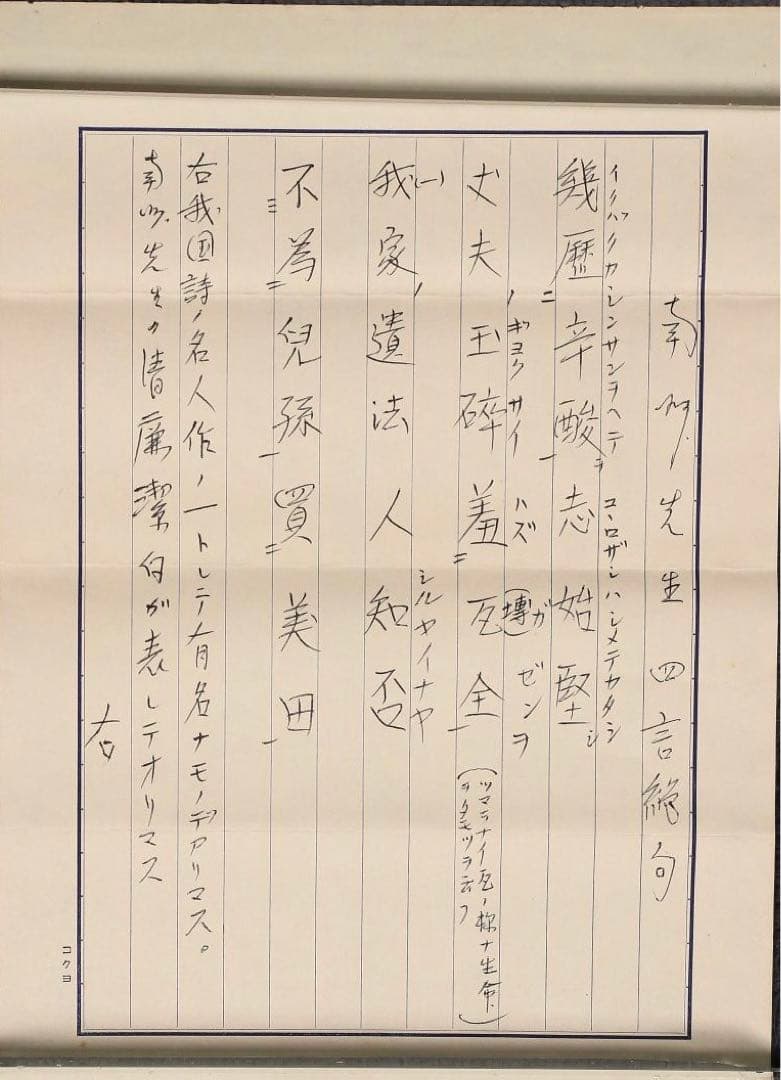 南州先生四言絶句
イクバクカシンサンヲヘテ コヽロザシハシメテカタシ
幾歴二辛酸一ヲ志始堅シ
ノギヨクサイ ハズ ガ ゼンヲ
丈夫玉碎羞二瓦(塼)全一(ツマラナイ瓦ノ様ナ生命ヲタモツヲ云フ)
シルヤイナヤ
(一)我家ノ遺法人知否
不三為二兒孫一買二美田一
右我国詩ノ名人作ノ一トシテ有名ナモノデアリマス。
南州先生の清廉潔白が表レテオリマス
右
コクヨ